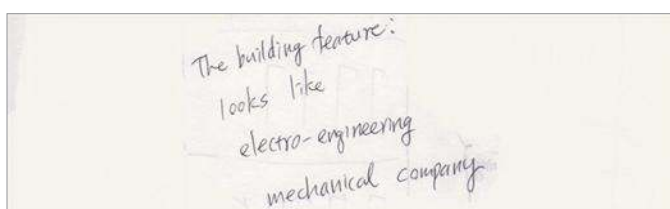 The building feature:
looks like
electro-engineering
mechanical company